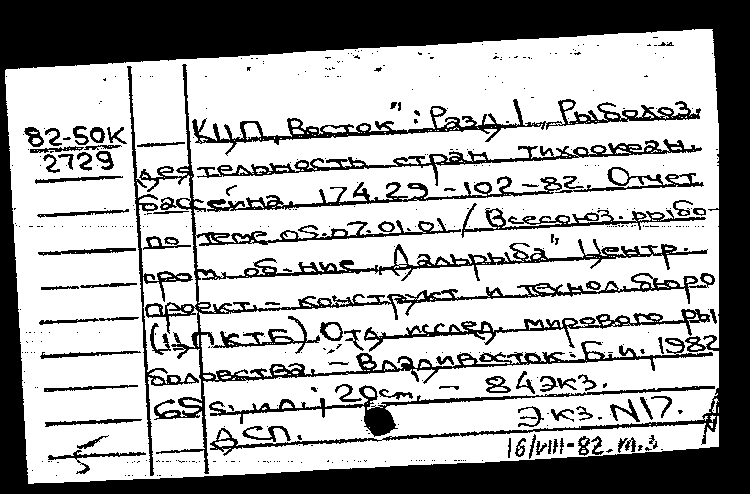 82-50К
2729
КЦП „Восток": Разд. 1 „Рыбохоз.
деятельность стран тихоокеан.
бассейна. 174.29-102-82. Отчет
по теме 05.07.01.01 / Всесоюз. рыбо-
пром. об-ние „Дальрыба" Центр.
проект.- конструкт и технол. бюро
(ЦПКТБ). Отд. исслед. мирового ры
боловства. - Владивосток: Б.и., 1982
69 s., ил.; 20 см. - 84 экз.
ДСП. Экз. N17.
5 16/VIII-82. т.з